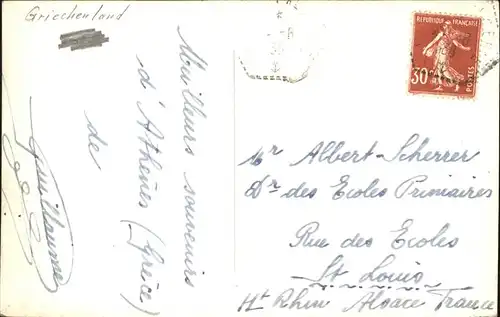 Griechenland
Meilleurs souvenirs
d'Athènes (Grèce)
de
Guillaume
REPUBLIQUE FRANÇAISE
30c
POSTES
Mr Albert-Scherrer
Dr des Ecoles Primaires
Rue des Ecoles
St Louis
Ht Rhin Alsace France